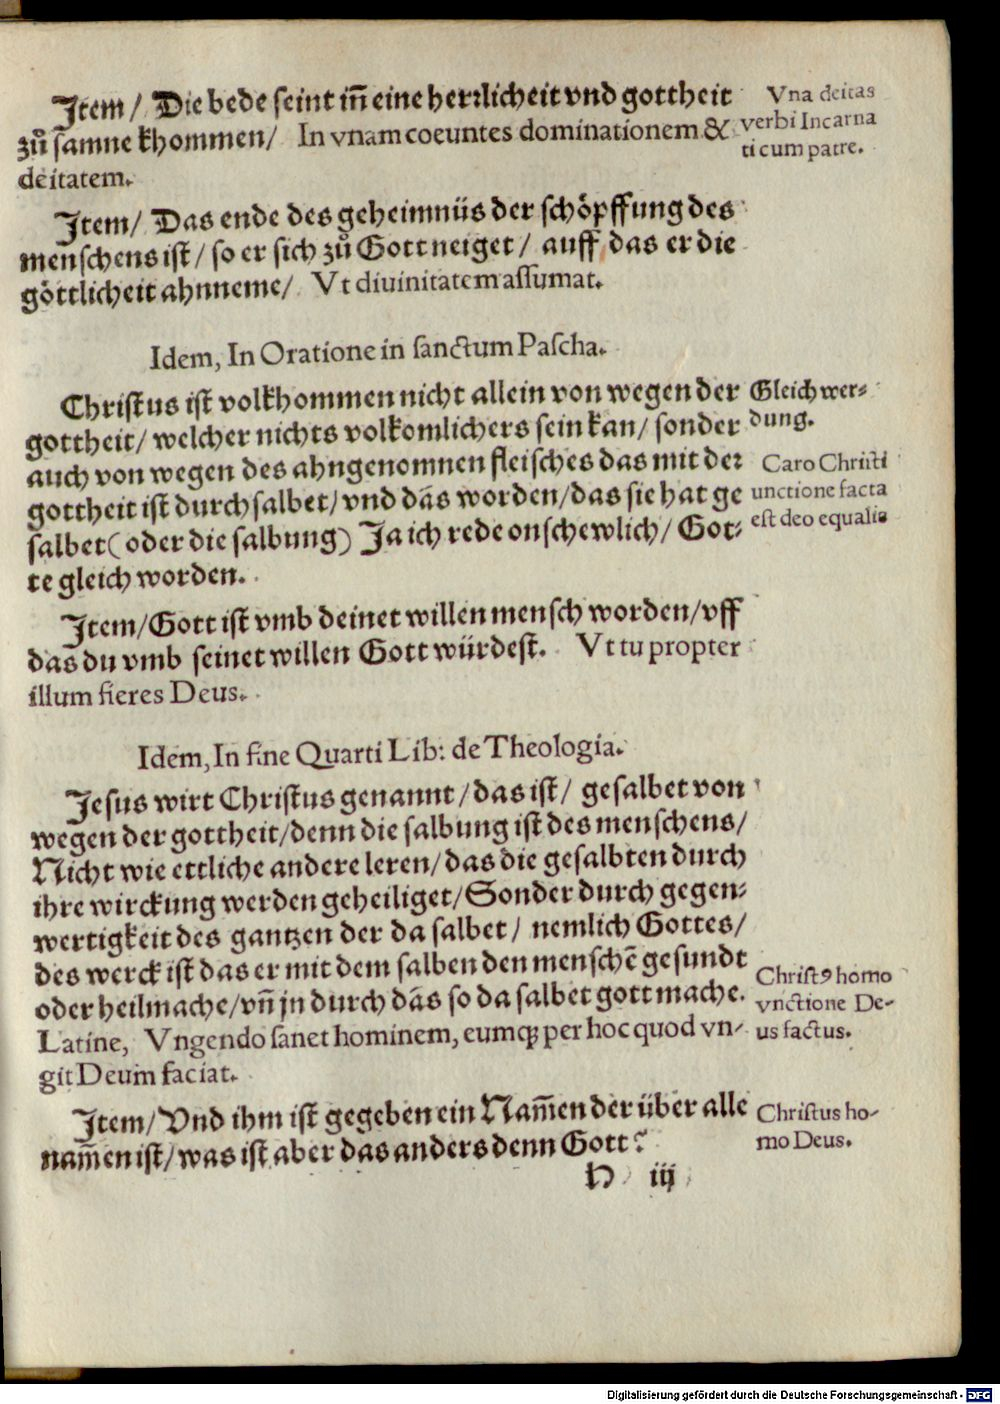 Item / Die bede seint iñ eine herꝛlicheit vnd gottheit
zů samne khommen / In vnam coeuntes dominationem &
deitatem.
Vna deitas
verbi Incarna
ti cum patre.
Item / Das ende des geheimnüs der schöpffung des
menschens ist / so er sich zů Gott neiget / auff das er die
göttlicheit ahnneme / Vt diuinitatem assumat.
Idem, In Oratione in sanctum Pascha.
Christus ist volkhommen nicht allein von wegen der
gottheit / welcher nichts volkomlichers sein kan / sonder
auch von wegen des ahngenomnen fleisches das mit der
gottheit ist durchsalbet / vnd das worden / das sie hat ge
salbet (oder die salbung) Ja ich rede onschewlich / Got-
te gleich worden.
Gleich wer-
dung.
Caro Christi
unctione facta
est deo equalis
Item / Gott ist vmb deinet willen mensch worden / vff
das du vmb seinet willen Gott würdest. Vt tu propter
illum fieres Deus.
Idem, In fine Quarti Lib: de Theologia.
Jesus wirt Christus genannt / das ist / gesalbet von
wegen der gottheit / denn die salbung ist des menschens /
Nicht wie ettliche andere leren / das die gesalbten durch
ihre wirckung werden geheiliget / Sonder durch gegen-
wertigkeit des gantzen der da salbet / nemlich Gottes /
des werck ist das er mit dem salben den menschē gesundt
oder heilmache / vñ jn durch das so da salbet gott mache.
Latine, Vngendo sanet hominem, eumqꝫ per hoc quod vn-
git Deum faciat.
Christꝰ homo
vnctione De-
us factus.
Item / Vnd ihm ist gegeben ein Nam̄en der über alle
nam̄en ist / was ist aber das anders denn Gott?
Christus ho-
mo Deus.
H iij
Digitalisierung gefördert durch die Deutsche Forschungsgemeinschaft - DFG